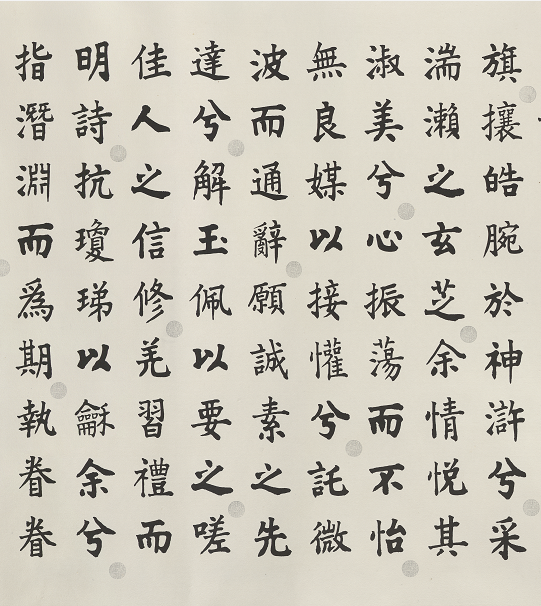 旗攘皓腕於神滸兮采
湍瀨之玄芝余情悅其
淑美兮心振蕩而不怡
無良媒以接懽兮託微
波而通辭願誠素之先
達兮解玉佩以要之嗟
佳人之信修羌習禮而
明詩抗瓊珶以龢余兮
指潛淵而爲期執眷眷